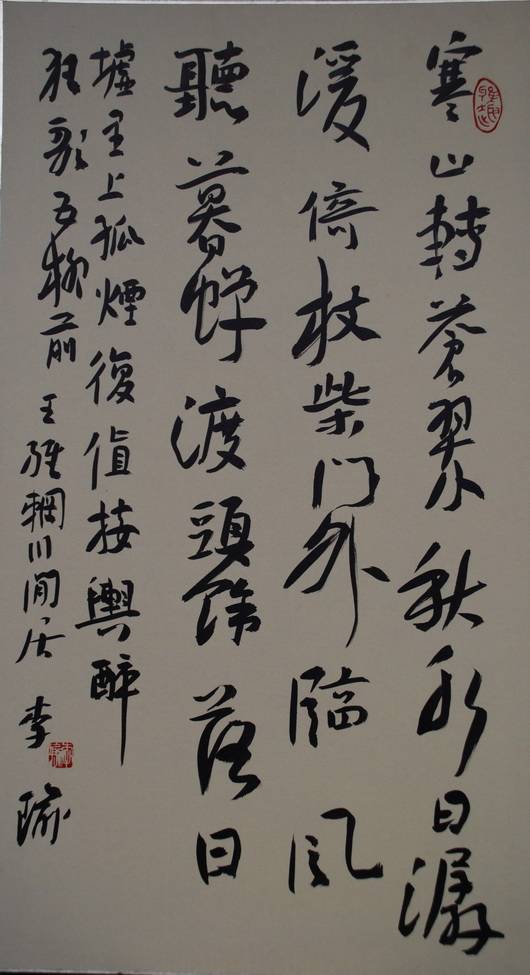 寒山轉蒼翠秋水日潺
湲倚杖柴門外臨風
聽暮蟬渡頭餘落日
墟里上孤煙復值接輿醉
狂歌五柳前王維輞川閒居李瑜